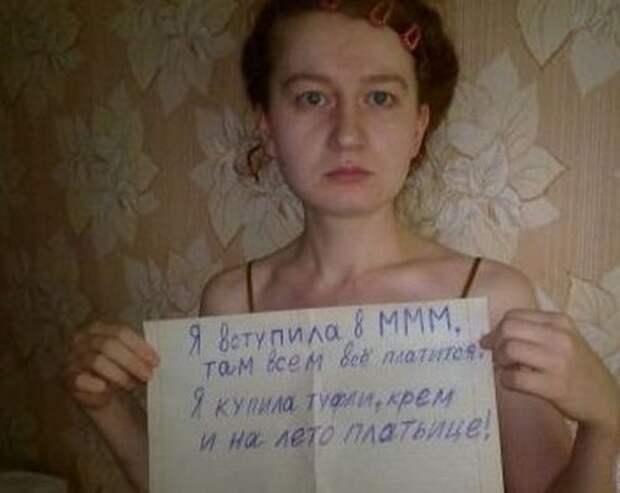 Я вступила в МММ,
там всем всё платится.
Я купила туфли, крем
и на лето платьице!